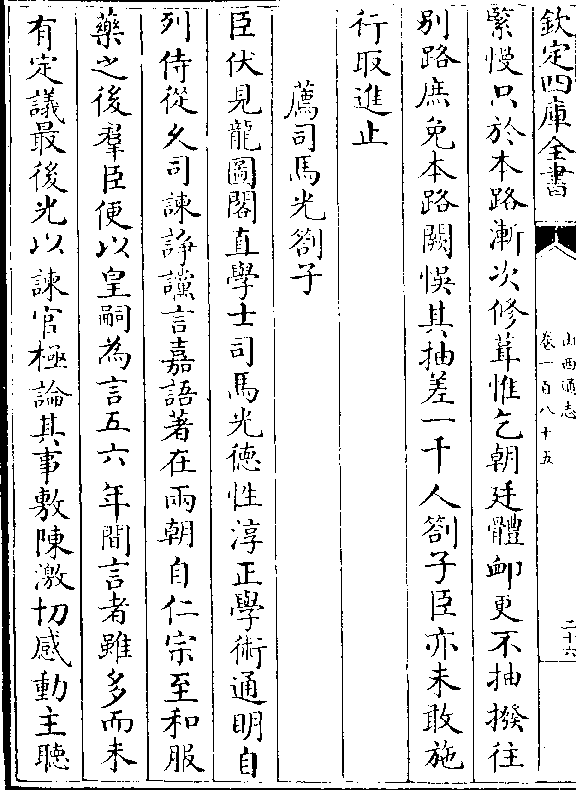 欽定四庫全書
山西通志
卷一百八十五
二十六
緊慢只於本路漸次修葺惟乞朝廷體䘏更不抽撥往
别路庶免本路闕悞其抽差一千人劄子臣亦未敢施
行取進止
薦司馬光劄子
臣伏見龍圖閣直學士司馬光德性淳正學術通明自
列侍從久司諫諍讜言嘉語著在兩朝自仁宗至和服
藥之後羣臣便以皇嗣為言五六年間言者雖多而未
有定議最後光以諫官極論其事敷陳激切感動主聽